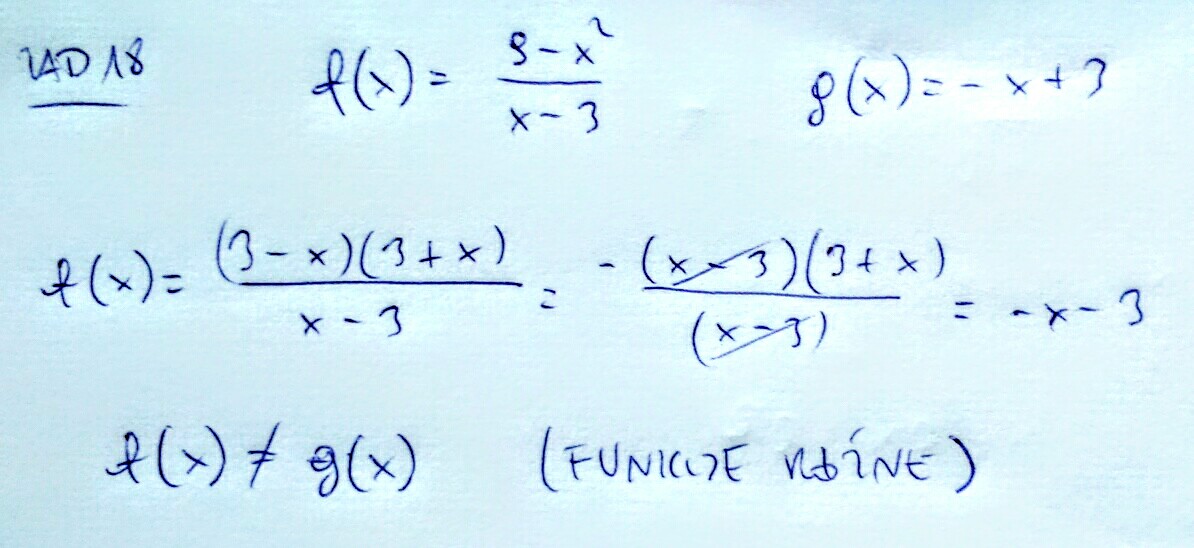 ZAD 18 f(x) = (9-x²)/(x-3) g(x) = -x+3
f(x) = (3-x)(3+x)/(x-3) = -(x-3)(3+x)/(x-3) = -x-3
f(x) ≠ g(x) (FUNKCJE RÓŻNE)